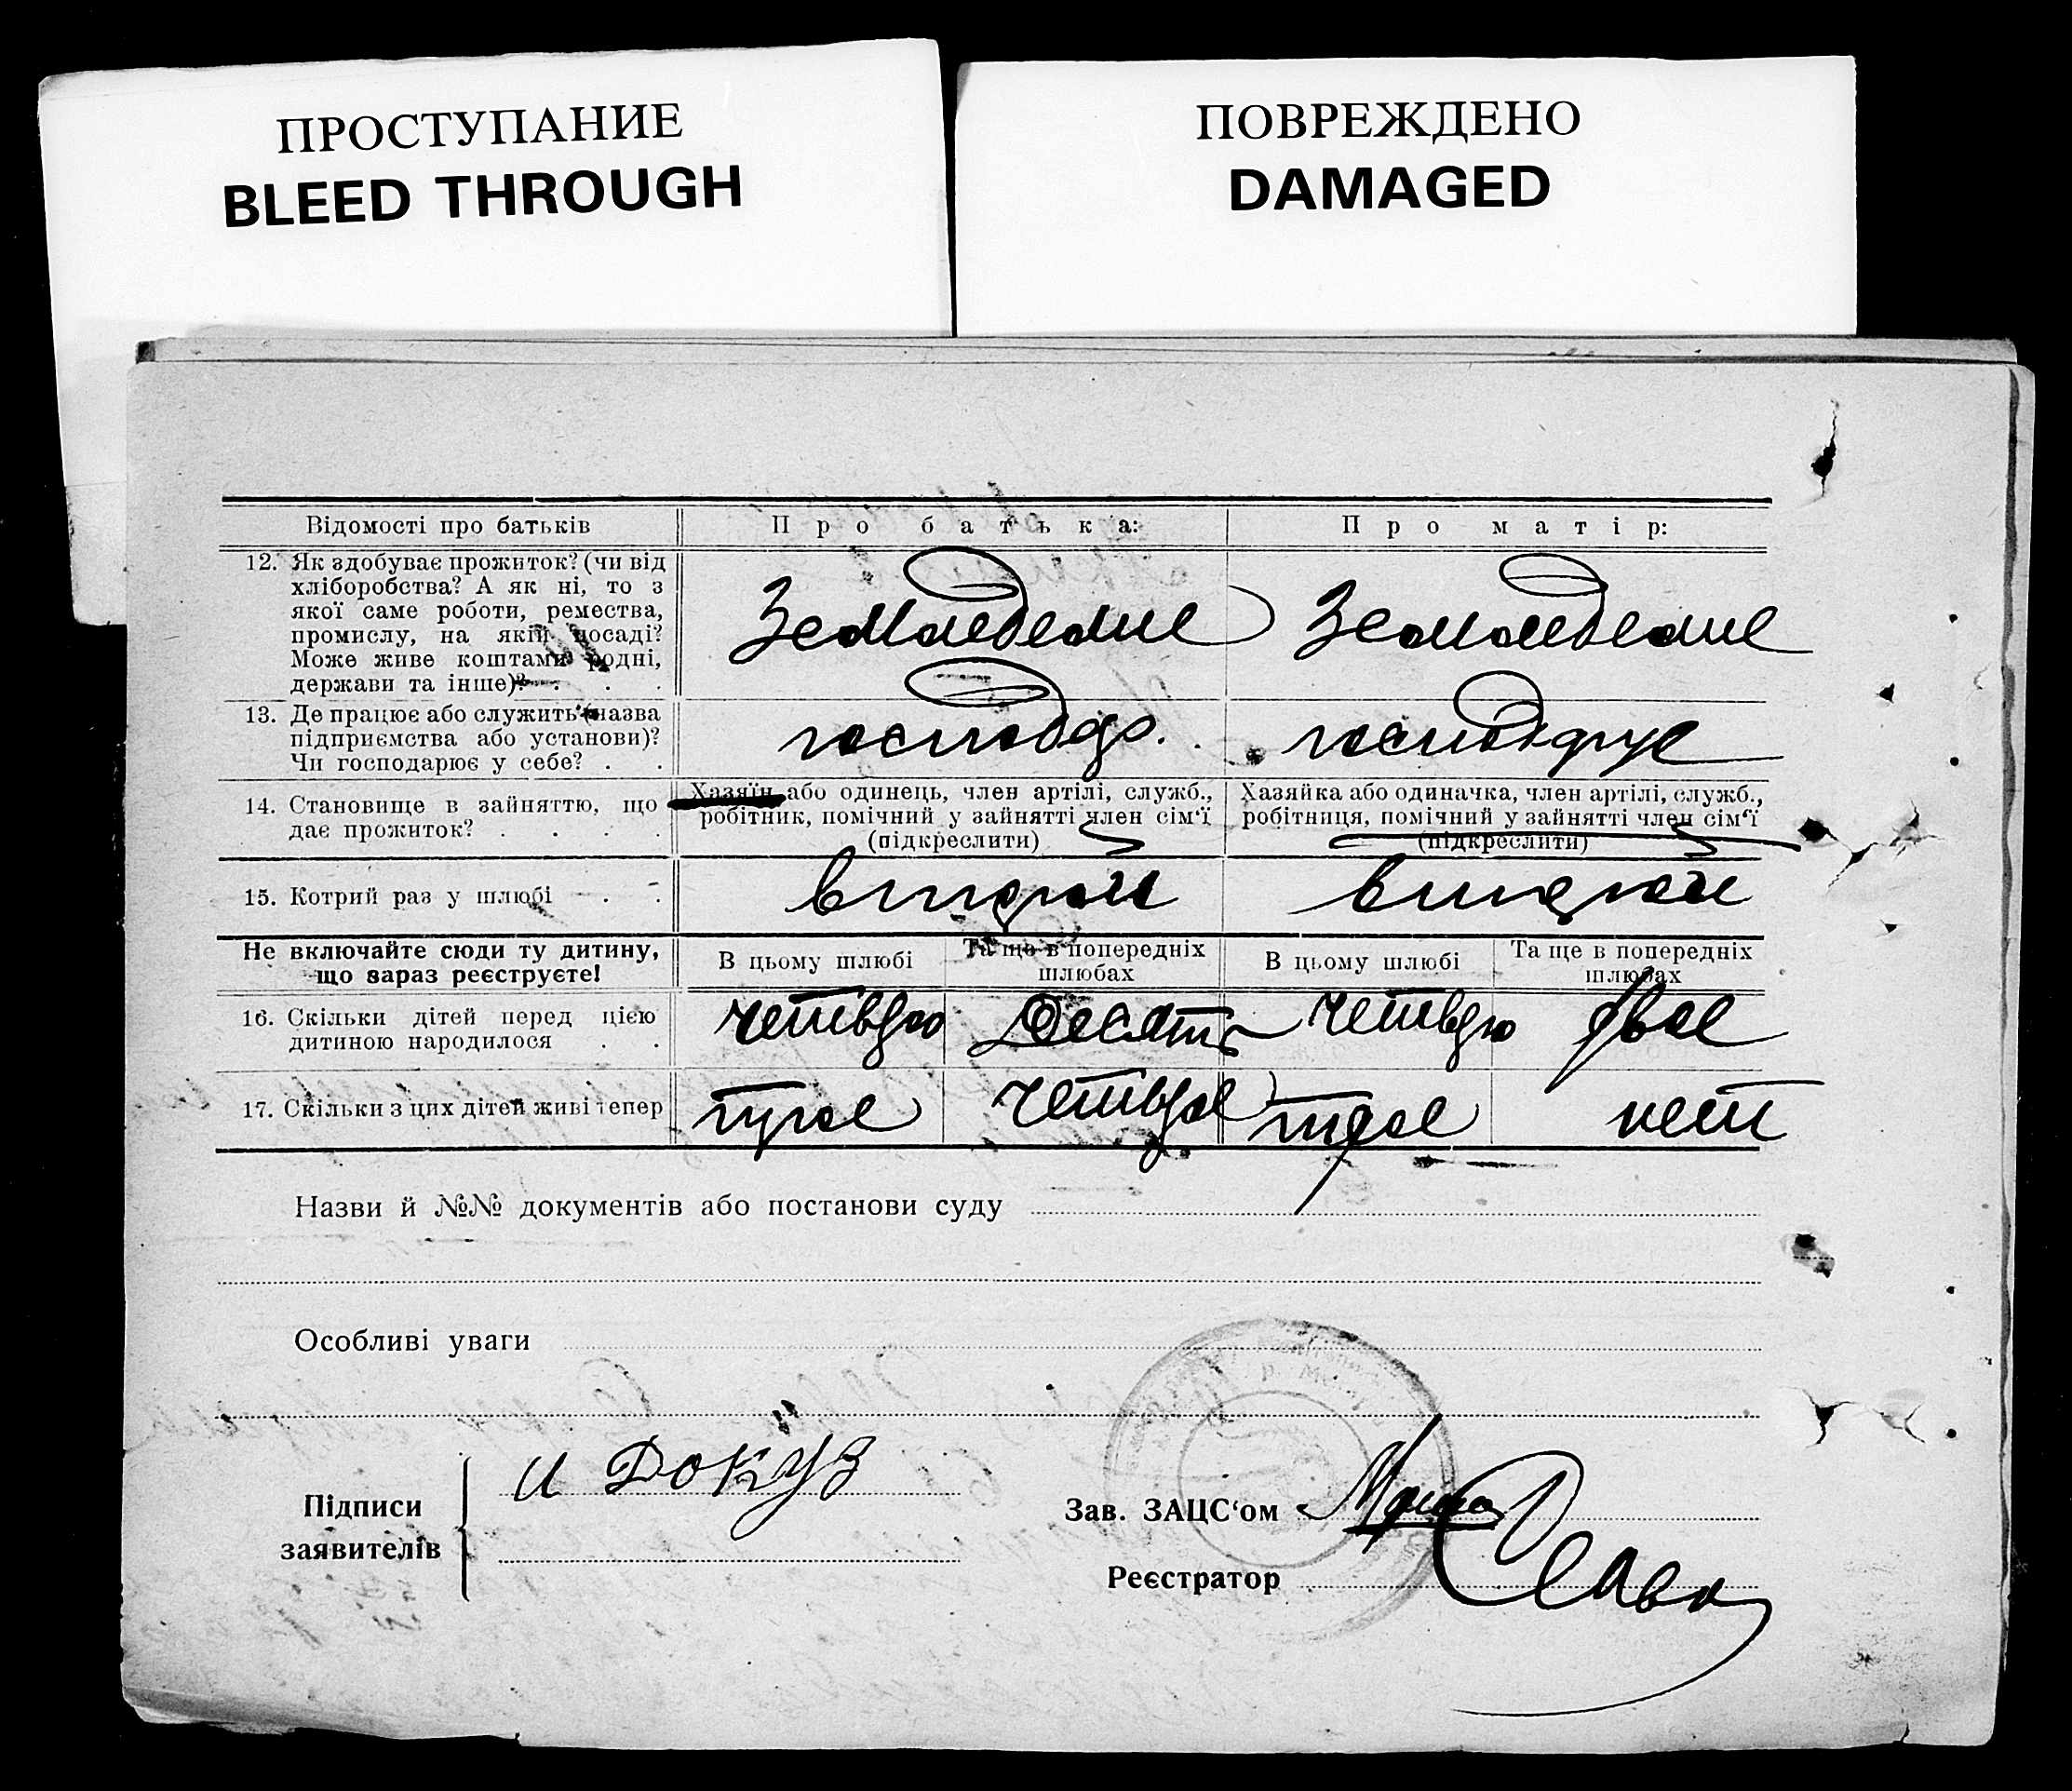 ПРОСТУПАНИЕ
BLEED THROUGH
ПОВРЕЖДЕНО
DAMAGED
Відомості про батьків
Про батька:
Про матір:
12. Як здобуває прожиток? (чи від
хліборобства? А як ні, то з
якої саме роботи, ремества,
промислу, на якій посаді?
Може живе коштами родні,
держави та інше)?
Земледелие
Земледелие
13. Де працює або служить (назва
підприємства або установи)?
Чи господарює у себе?
господар.
господарує
14. Становище в зайняттю, що
дає прожиток?
Хазяїн або одинець, член артілі, служб.,
робітник, помічний у зайнятті член сім'ї
(підкреслити)
Хазяйка або одиначка, член артілі, служб.,
робітниця, помічний у зайнятті член сім'ї
(підкреслити)
15. Котрий раз у шлюбі
второй
второй
Не включайте сюди ту дитину,
що зараз реєструєте!
В цьому шлюбі
Та ще в попередніх
шлюбах
В цьому шлюбі
Та ще в попередніх
шлюбах
16. Скільки дітей перед цією
дитиною народилося
четверо
Десять
четверо
двое
17. Скільки з цих дітей живі тепер
трое
четверо
трое
нет
Назви й №№ документів або постанови суду
Особливі уваги
Підписи
заявителів
И Докуз
Зав. ЗАЦС'ом
Реєстратор